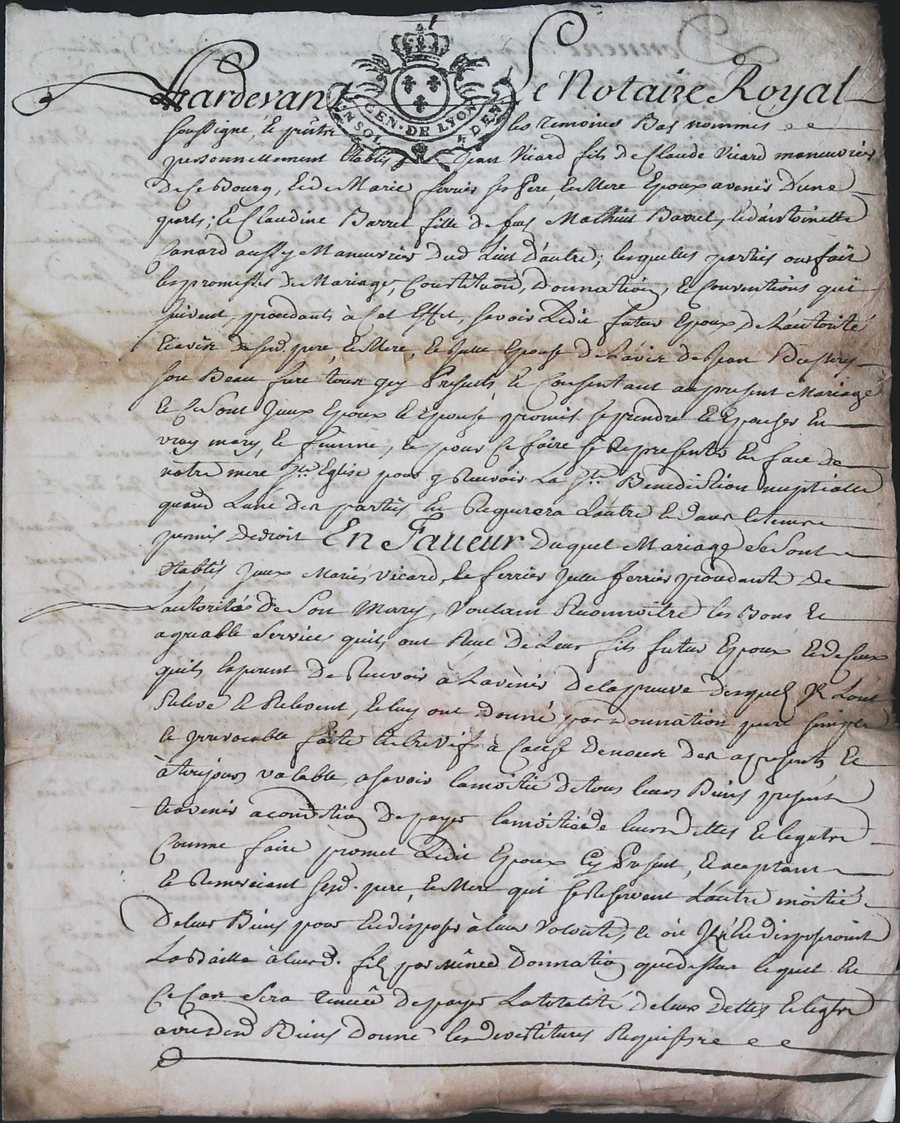 Pardevant Le Notaire Royal
GEN · DE · LYON
UN SOL 4 DEN
soussigné, et les temoins Bas nommés
personnellement Etablis Jean Vicard fils de Claude Vicard manouvrier
de ce Bourg, et de Marie ferrier ses pere, et Mere Epoux avenir D'une
part; et Claudine Barret fille de feu Mathieu Barret, et d'antoinette
Canard aussy Manouvrier Dud Lieu d'autre; lesquelles parties ont fait
les promesses de Mariage, Constitution, Donnation, et Conventions qui
suivent, procedants à Cet Effet, savoir Ledit futur Epoux de L'autorité
et avis de sesd. pere, et Mere, et Epouse de L'avis de Jean
son Beau frere tous icy Presents, et Consentant au present Mariage
et se sont Epoux et Epouse promis se prendre et Epouser En
vray mary, et femme, et pour ce faire se Representer En face de
notre mere Ste Eglise pour y Recevoir La Ste Benediction nuptialle
quand L'une des parties En Requerera L'autre et dans le temps
permis de droit En Faveur Duquel Mariage se sont
Etablis Mariés Vicard, et ferrier ferrier procedante de
L'autorité de son Mary, Voulant Reconnoitre les Bons et
agreable Services quils ont Reçu de Leur fils futur Epoux et de Ceux
quils Esperent de Recevoir à L'avenir de la preuve desquels L'ont
Relevé et Relevent, et luy ont donné par Donnation pure simple
et irrevocable faite Entre vifs à Cause de noces des apresents et
à toujours valable, asavoir la moitié de tous leurs Biens present
et avenir a condition de payer la moitié de leurs dettes et legats
Comme faire promet Ledit Epoux icy Present, et aceptant
et Remerciant sesd. pere, et Mere qui se Reservent L'autre moitié
De leurs Biens pour En disposer à leur Volonté, et où En disposeroient
à leurd. fils par Même Donnation que dessus lequel En
Ce Cas sera tenu de payer La totalité de leurs dettes et legats
Biens donné les devestitures Requises